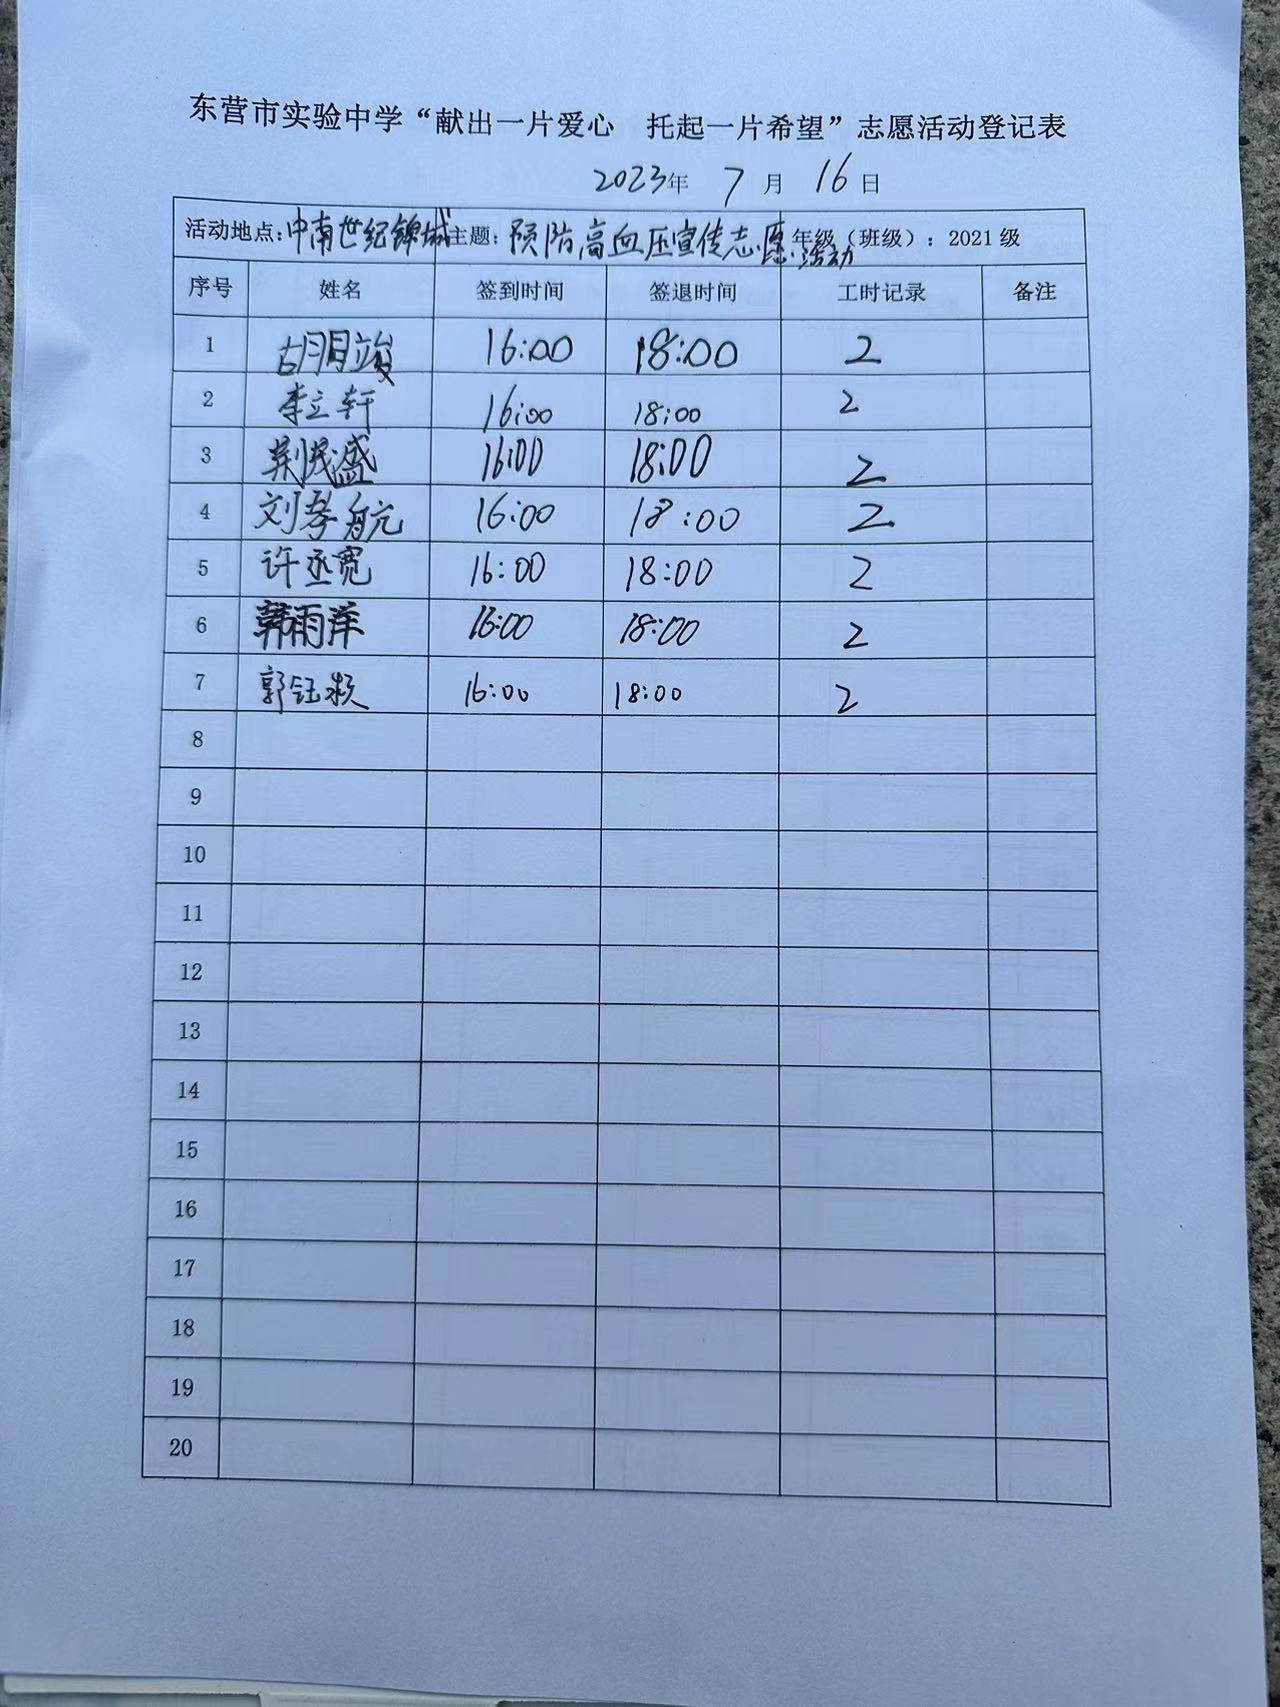 东营市实验中学“献出一片爱心 托起一片希望”志愿活动登记表
2023年 7 月 16 日
活动地点：中南世纪锦城 主题：预防高血压宣传志愿活动 年级（班级）：2021级
序号 姓名 签到时间 签退时间 工时记录 备注
1 16:00 18:00 2
2 李立轩 16:00 18:00 2
3 荆民盛 16:00 18:00 2
4 刘孝航 16:00 18:00 2
5 许丞宽 16:00 18:00 2
6 韩雨洋 16:00 18:00 2
7 郭钰 16:00 18:00 2
8
9
10
11
12
13
14
15
16
17
18
19
20